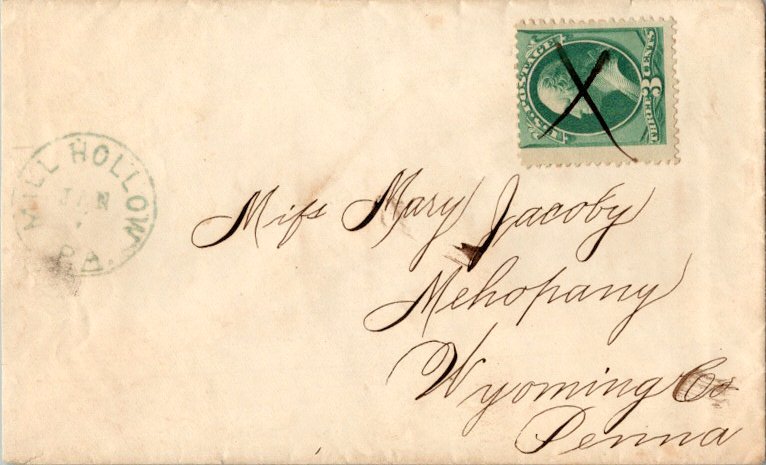 U.S. POSTAGE
3
THREE CENTS
MILL HOLLOW
JAN
PA.
Mifs Mary Jacoby
Mehopany
Wyoming Co
Penna